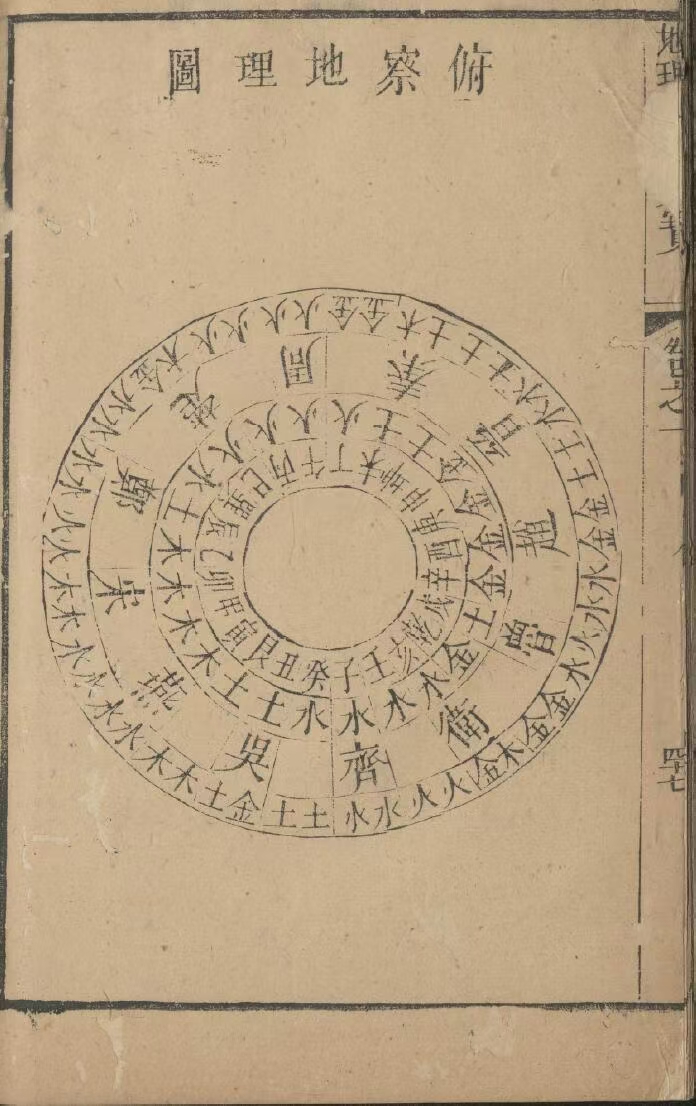 俯察地理圖
子癸丑艮寅甲卯乙辰巽巳丙午丁未坤申庚酉辛戌乾亥壬
水水土土木木木木土水火火火火土土金金金金土金水水
齊吳燕宋鄭楚周秦晉趙魯衛
水土土金土木木水水水水木木火火水水水水金木火火火火金金木土土土水水土土金金水水火水金金木金火火水
地理
寶
卷之一
四七